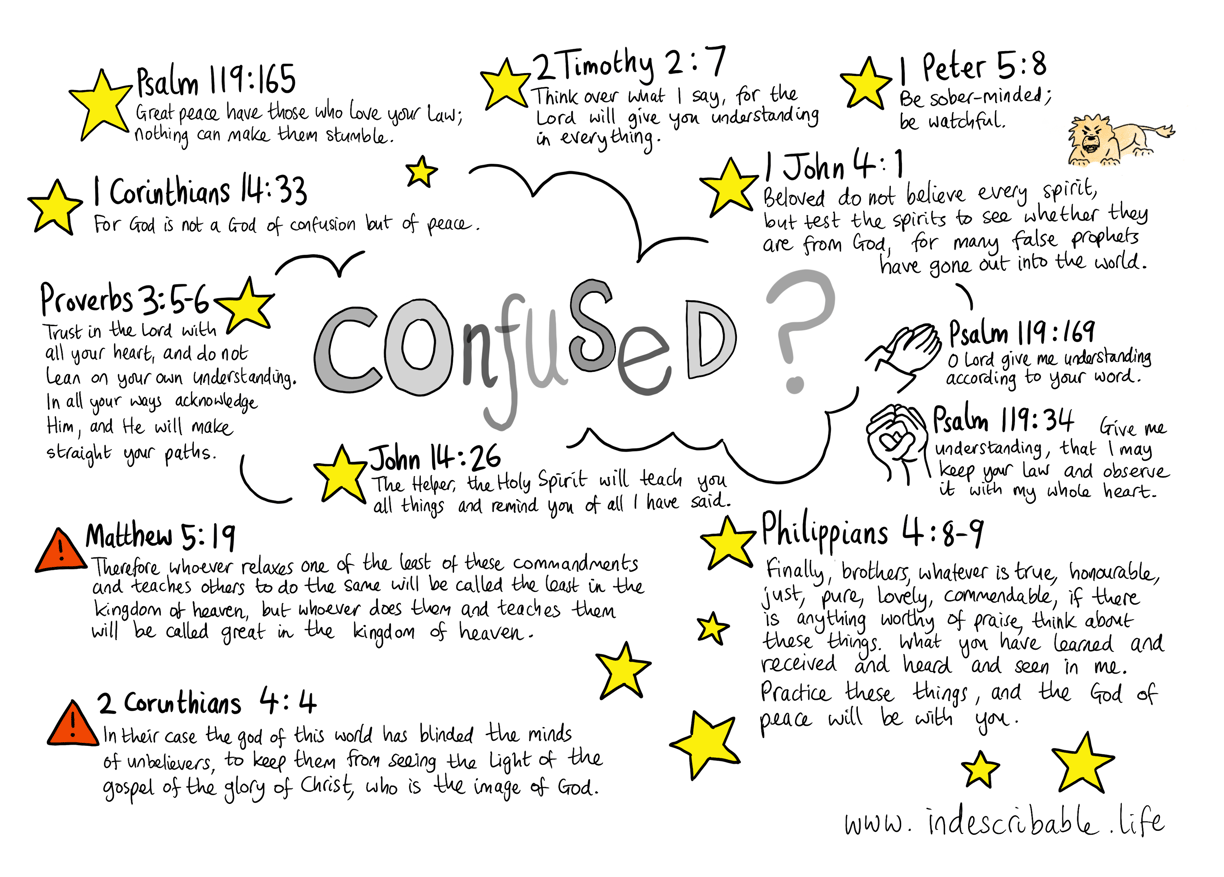 Psalm 119:165
Great peace have those who love your law;
nothing can make them stumble.
2 Timothy 2:7
Think over what I say, for the
Lord will give you understanding
in everything.
1 Peter 5:8
Be sober-minded;
be watchful.
1 Corinthians 14:33
For God is not a God of confusion but of peace.
1 John 4:1
Beloved do not believe every spirit,
but test the spirits to see whether they
are from God, for many false prophets
have gone out into the world.
Proverbs 3:5-6
Trust in the Lord with
all your heart, and do not
lean on your own understanding.
In all your ways acknowledge
Him, and He will make
straight your paths.
COnfuSeD?
Psalm 119:169
O Lord give me understanding
according to your word.
Psalm 119:34 Give me
understanding, that I may
keep your law and observe
it with my whole heart.
John 14:26
The Helper, the Holy Spirit will teach you
all things and remind you of all I have said.
Matthew 5:19
Therefore whoever relaxes one of the least of these commandments
and teaches others to do the same will be called the least in the
kingdom of heaven, but whoever does them and teaches them
will be called great in the kingdom of heaven.
Philippians 4:8-9
Finally, brothers, whatever is true, honourable,
just, pure, lovely, commendable, if there
is anything worthy of praise, think about
these things. What you have learned and
received and heard and seen in me.
Practice these things, and the God of
peace will be with you.
2 Corunthians 4:4
In their case the god of this world has blinded the minds
of unbelievers, to keep them from seeing the light of the
gospel of the glory of Christ, who is the image of God.
www.indescribable.life